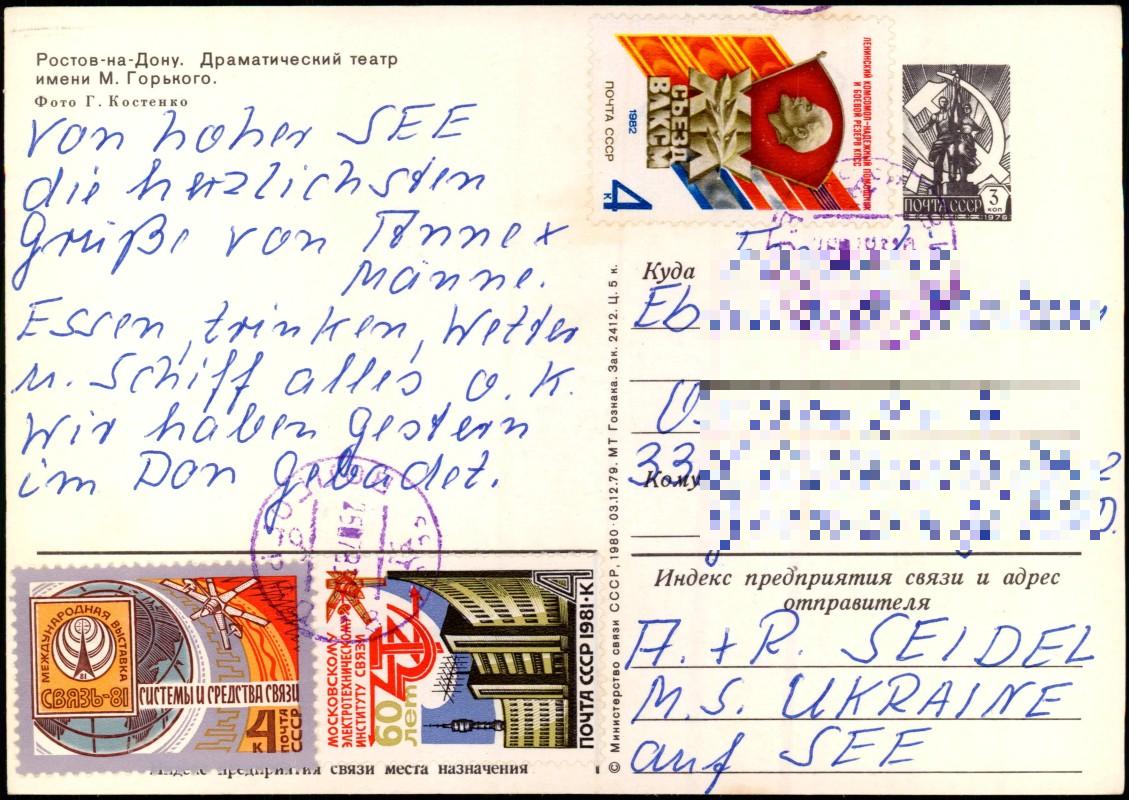 Ростов-на-Дону. Драматический театр
имени М. Горького.
Фото Г. Костенко
von hoher SEE
die herzlichsten
Grüße von Änne +
Männe.
Essen, trinken, Wetter
u. Schiff alles o.K.
Wir haben gestern
im Don gebadet.
МЕЖДУНАРОДНАЯ ВЫСТАВКА
81
СВЯЗЬ-81
СИСТЕМЫ И СРЕДСТВА СВЯЗИ
4К
ПОЧТА
СССР
МОСКОВСКОМУ
ЭЛЕКТРОТЕХНИЧЕСКОМУ
ИНСТИТУТУ СВЯЗИ
60
лет
ПОЧТА СССР 1981·К
4
Индекс предприятия связи места назначения
© Министерство связи СССР, 1980 · 03.12.79. МТ Гознака. Зак. 2412. Ц. 5 к.
ЛЕНИНСКИЙ КОМСОМОЛ-НАДЕЖНЫЙ ПОМОЩНИК
И БОЕВОЙ РЕЗЕРВ КПСС
XIX
СЪЕЗД
ВЛКСМ
1982
ПОЧТА СССР
4к
ПОЧТА СССР 3 коп
1976
Куда
Eb
33
Кому
Индекс предприятия связи и адрес
отправителя
A. + R. SEIDEL
M.S. UKRAINE
auf SEE